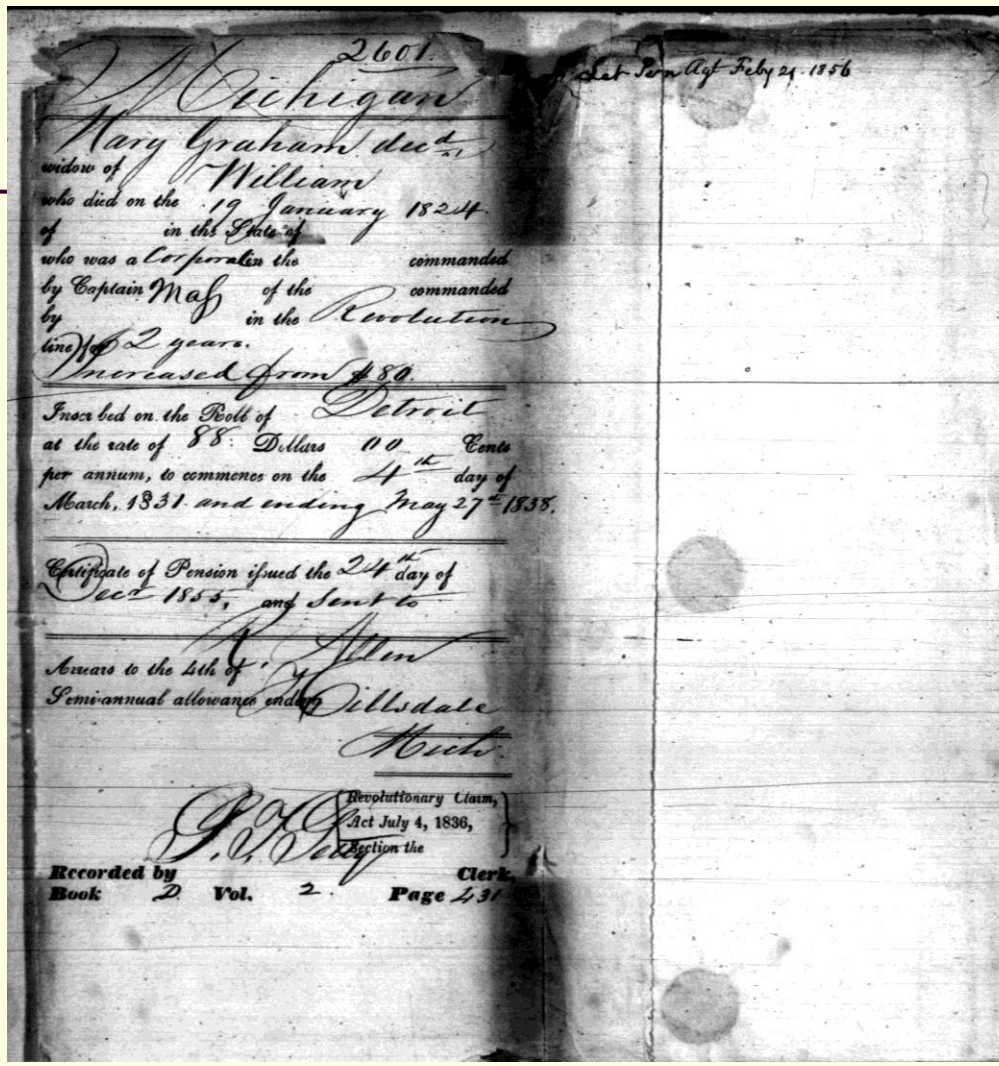 2601.
Michigan
Mary Graham decd
widow of William
who died on the 19 January 1824
of in the State of
who was a Corporal in the commanded
by Captain of the commanded
by in the Revolution
line for 2 years.
Increased from $80.
Inscribed on the Roll of Detroit
at the rate of 88 Dollars 00 Cents
per annum, to commence on the 4th day of
March, 1831 and ending May 27th 1838.
Certificate of Pension issued the 24th day of
Decr 1855, and Sent to
R. Allen
Arrears to the 4th of
Semi-annual allowance ending
Hillsdale
Mich.
Revolutionary Claim,
Act July 4, 1836,
Section the
Recorded by Clerk,
Book D Vol. 2. Page 431
Let Pen Agt Feby 21. 1856